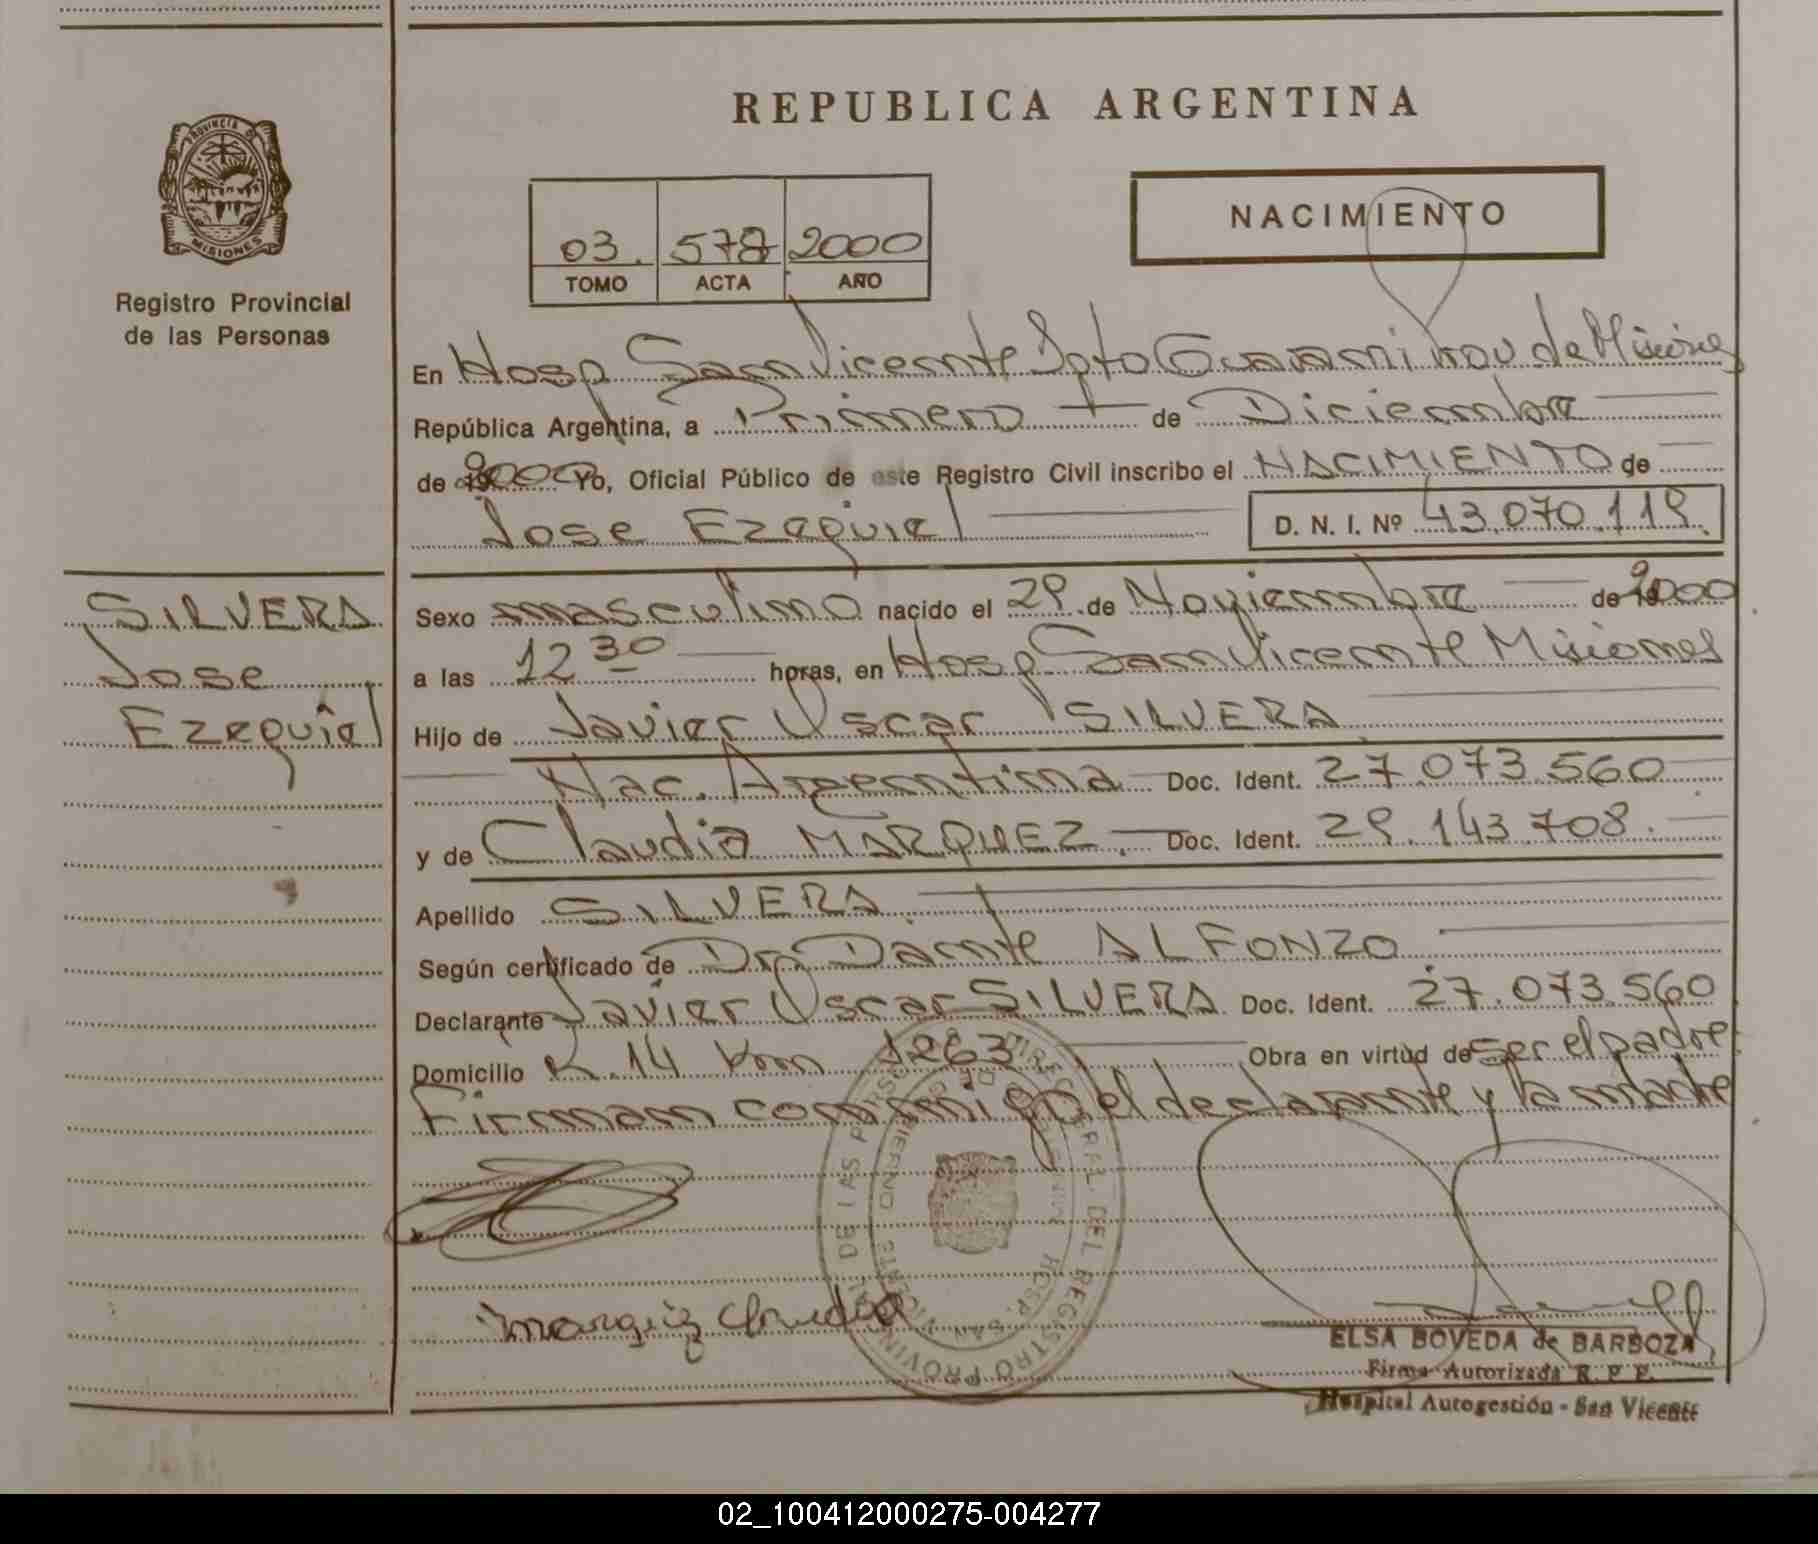 REPUBLICA ARGENTINA
PROVINCIA DE
MISIONES
Registro Provincial
de las Personas
NACIMIENTO
03. 578 2000
TOMO ACTA AÑO
En Hosp San Vicente Dpto Guarani Prov de Misiones
República Argentina, a Primero de Diciembre
de 2000 Yo, Oficial Público de este Registro Civil inscribo el NACIMIENTO de
Jose Ezequiel D. N. I. Nº 43.070.119.
SILVERA
Jose
Ezequiel
Sexo masculino nacido el 29 de Noviembre de 2000
a las 12 30 horas, en Hosp San Vicente Misiones
Hijo de Javier Oscar SILVERA
Nac. Argentina Doc. Ident. 27.073.560
y de Claudia MARQUEZ. Doc. Ident. 29.143.708.
Apellido SILVERA
Según certificado de Dr. Dante ALFONZO
Declarante Javier Oscar SILVERA Doc. Ident. 27.073.560
Domicilio R. 14 Km 1263 Obra en virtud de ser el padre
Firman conmigo el declarante y la madre
Marquez Claudia
ELSA BOVEDA de BARBOZA
Firma Autorizada R. P. P.
Hospital Autogestión - San Vicente
02_100412000275-004277